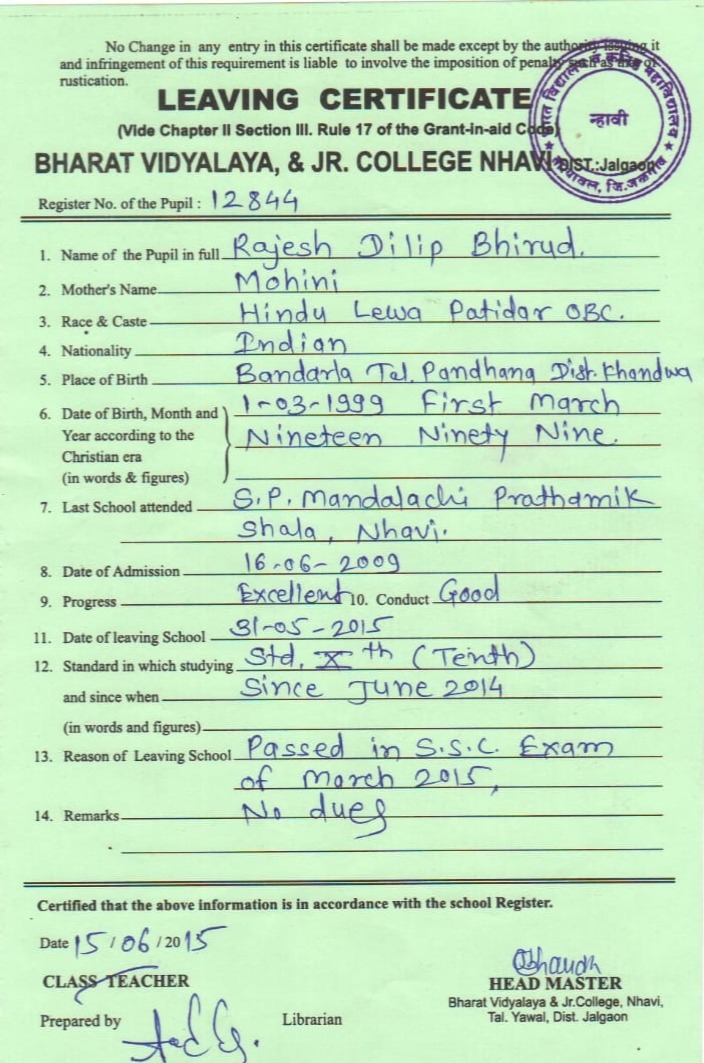 No Change in any entry in this certificate shall be made except by the authority issuing it
and infringement of this requirement is liable to involve the imposition of penalty such as that of
rustication.
LEAVING CERTIFICATE
(Vide Chapter II Section III. Rule 17 of the Grant-in-aid Code)
BHARAT VIDYALAYA, & JR. COLLEGE NHAVI DIST.:Jalgaon
न्हावी
Register No. of the Pupil : 12844
1. Name of the Pupil in full Rajesh Dilip Bhirud.
2. Mother's Name Mohini
3. Race & Caste Hindu Lewa Patidar OBC.
4. Nationality Indian
5. Place of Birth Bandarla Tal. Pandhana Dist. Khandwa
6. Date of Birth, Month and 1-03-1999 First March
Year according to the Nineteen Ninety Nine.
Christian era
(in words & figures)
7. Last School attended S.P. Mandalachi Prathamik
Shala, Nhavi.
8. Date of Admission 16-06-2009
9. Progress Excellent 10. Conduct Good
11. Date of leaving School 31-05-2015
12. Standard in which studying Std. X th (Tenth)
and since when Since June 2014
(in words and figures)
13. Reason of Leaving School Passed in S.S.C. Exam
of March 2015,
14. Remarks No dues
Certified that the above information is in accordance with the school Register.
Date 15/06/2015
CLASS TEACHER
HEAD MASTER
Bharat Vidyalaya & Jr.College, Nhavi,
Tal. Yawal, Dist. Jalgaon
Prepared by Librarian